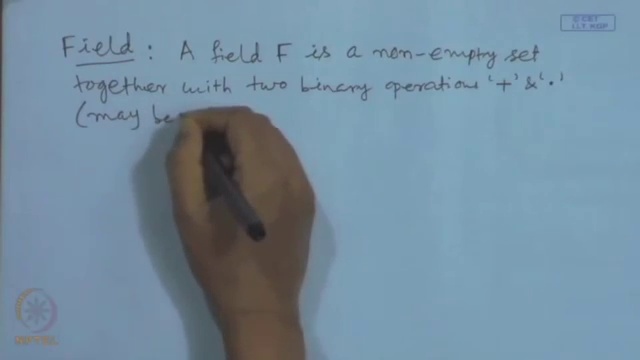 Field : A field F is a non-empty set
together with two binary operations '+' & '.'
(may be
© CET
I.I.T. KGP
NPTEL